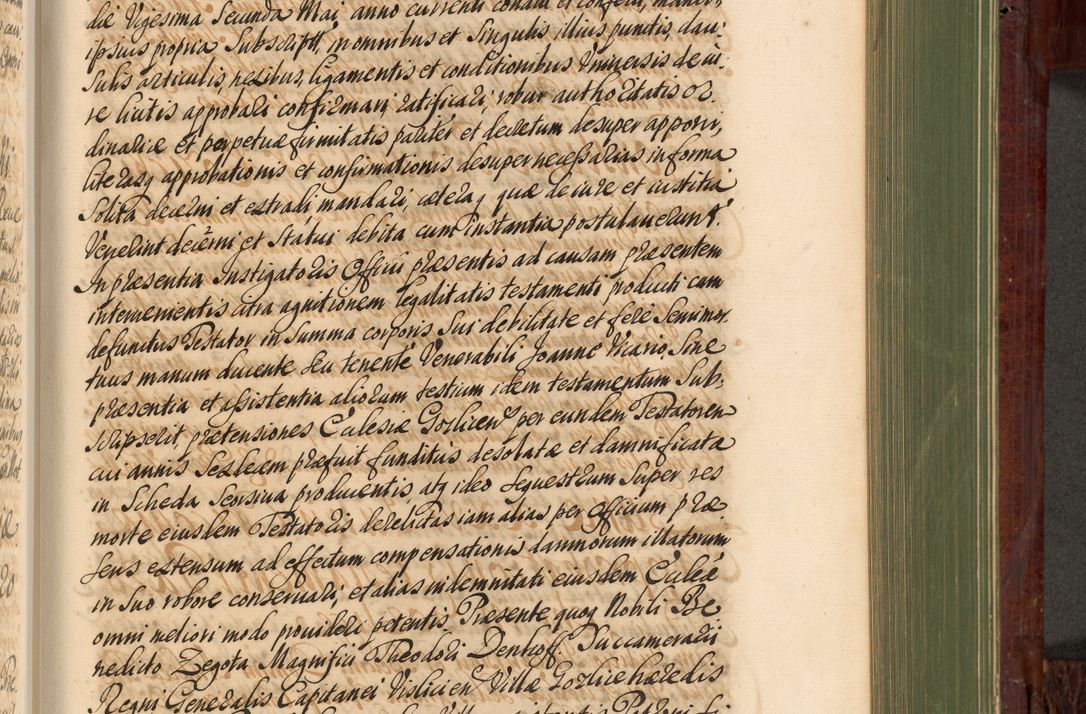 die Vigesima Secunda Maj anno currenti condit et confecti, manuq,
ipsius propria Subscripti, in omnibus et Singulis illius punctis, clau:
sulis articulis, nexibus, ligamentis et conditionibus Vniversis de iu:
re licitis approbari confirmari, ratificari, robur authoritatis or:
dinariæ et perpetuæ firmitatis pariter et decretum desuper apponi,
literasq approbationis et confirmationis desuper necessarias in forma
Solita decerni et extradi mandari, cæteraq quæ de iure et iustitia
Venerint decerni et Statui debita cum instantia postulaverunt.
In præsentia Instigatoris Officii præsentis ad causam præsentem
intervenientis citra agnitionem legalitatis testamenti producti cum
defunctus Testator in Summa corporis Sui debilitate et fere Semimor
tuus manum ducente Seu tenente Venerabili Joanne Vicario, Sine
præsentia et assistentia aliorum testium idem testamentum Sub,
scripserit, prætensiones Ecclesiæ Gorlicen per eundem Testatorem
cui annis Sedecem præfuit funditus desolatæ et damnificatæ
in Scheda Seorsiva producentis, atq ideo Sequestrum Super res
morte eiusdem Testatoris derelictas iam alias per Officium præ
sens extensum ad effectum compensationis damnorum illatorum
in Suo robore conservari, et alias indemnitati eiusdem Ecclæ
omni meliori modo provideri petentis Præsente quoq Nobili Be
nedicto Zegota Magnifici Theodori Denhoff Succamerarii
Regni Generalis Capitanei Vislicien Villæ Gorlice hæredis